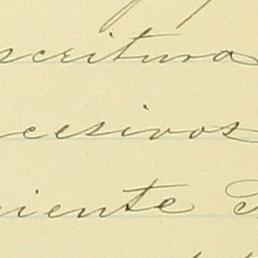 scritura
cesivos
iente